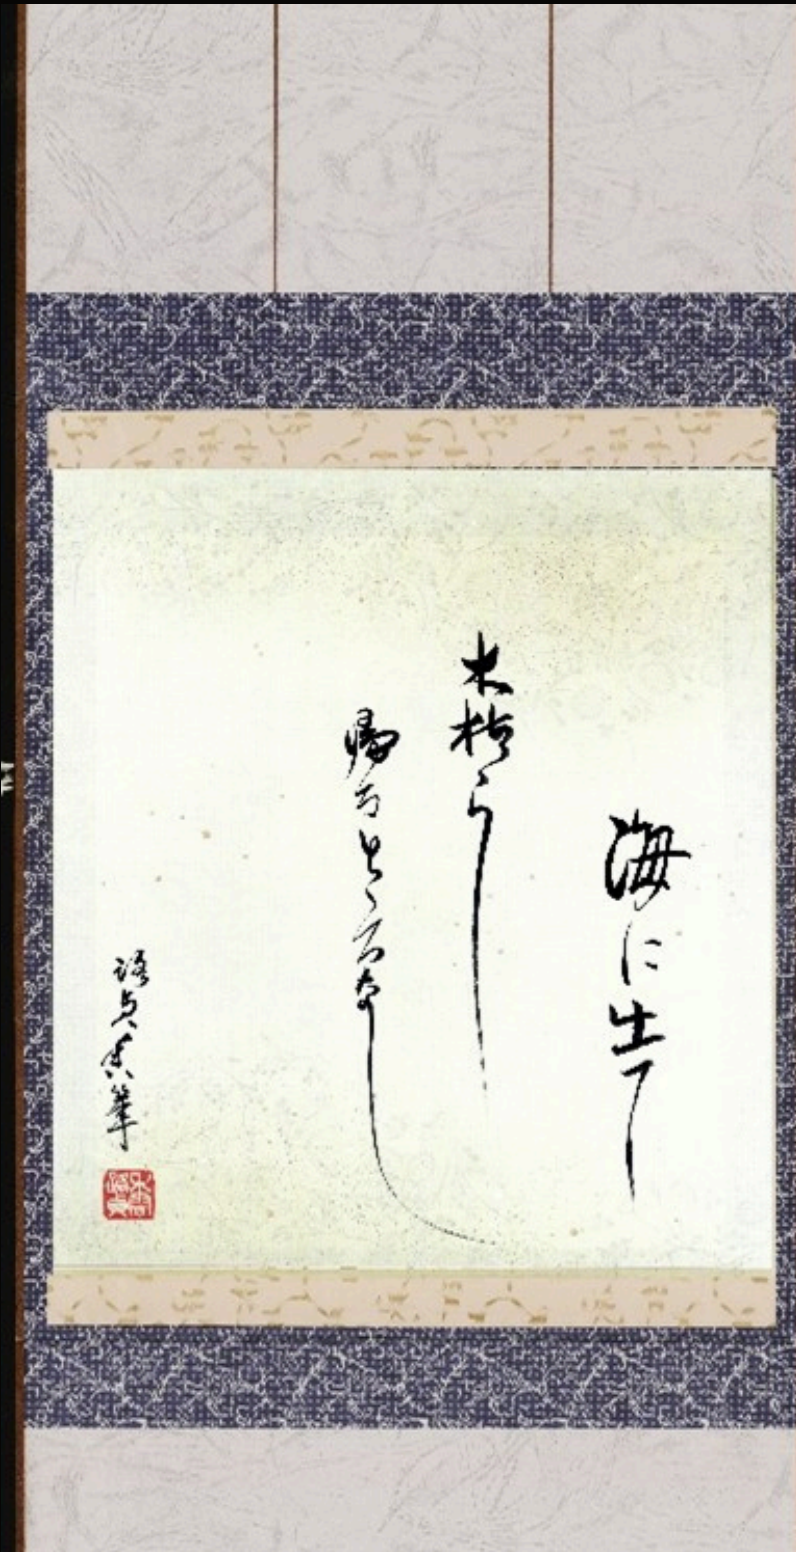 海に出て
木枯らし
帰るところなし
筆